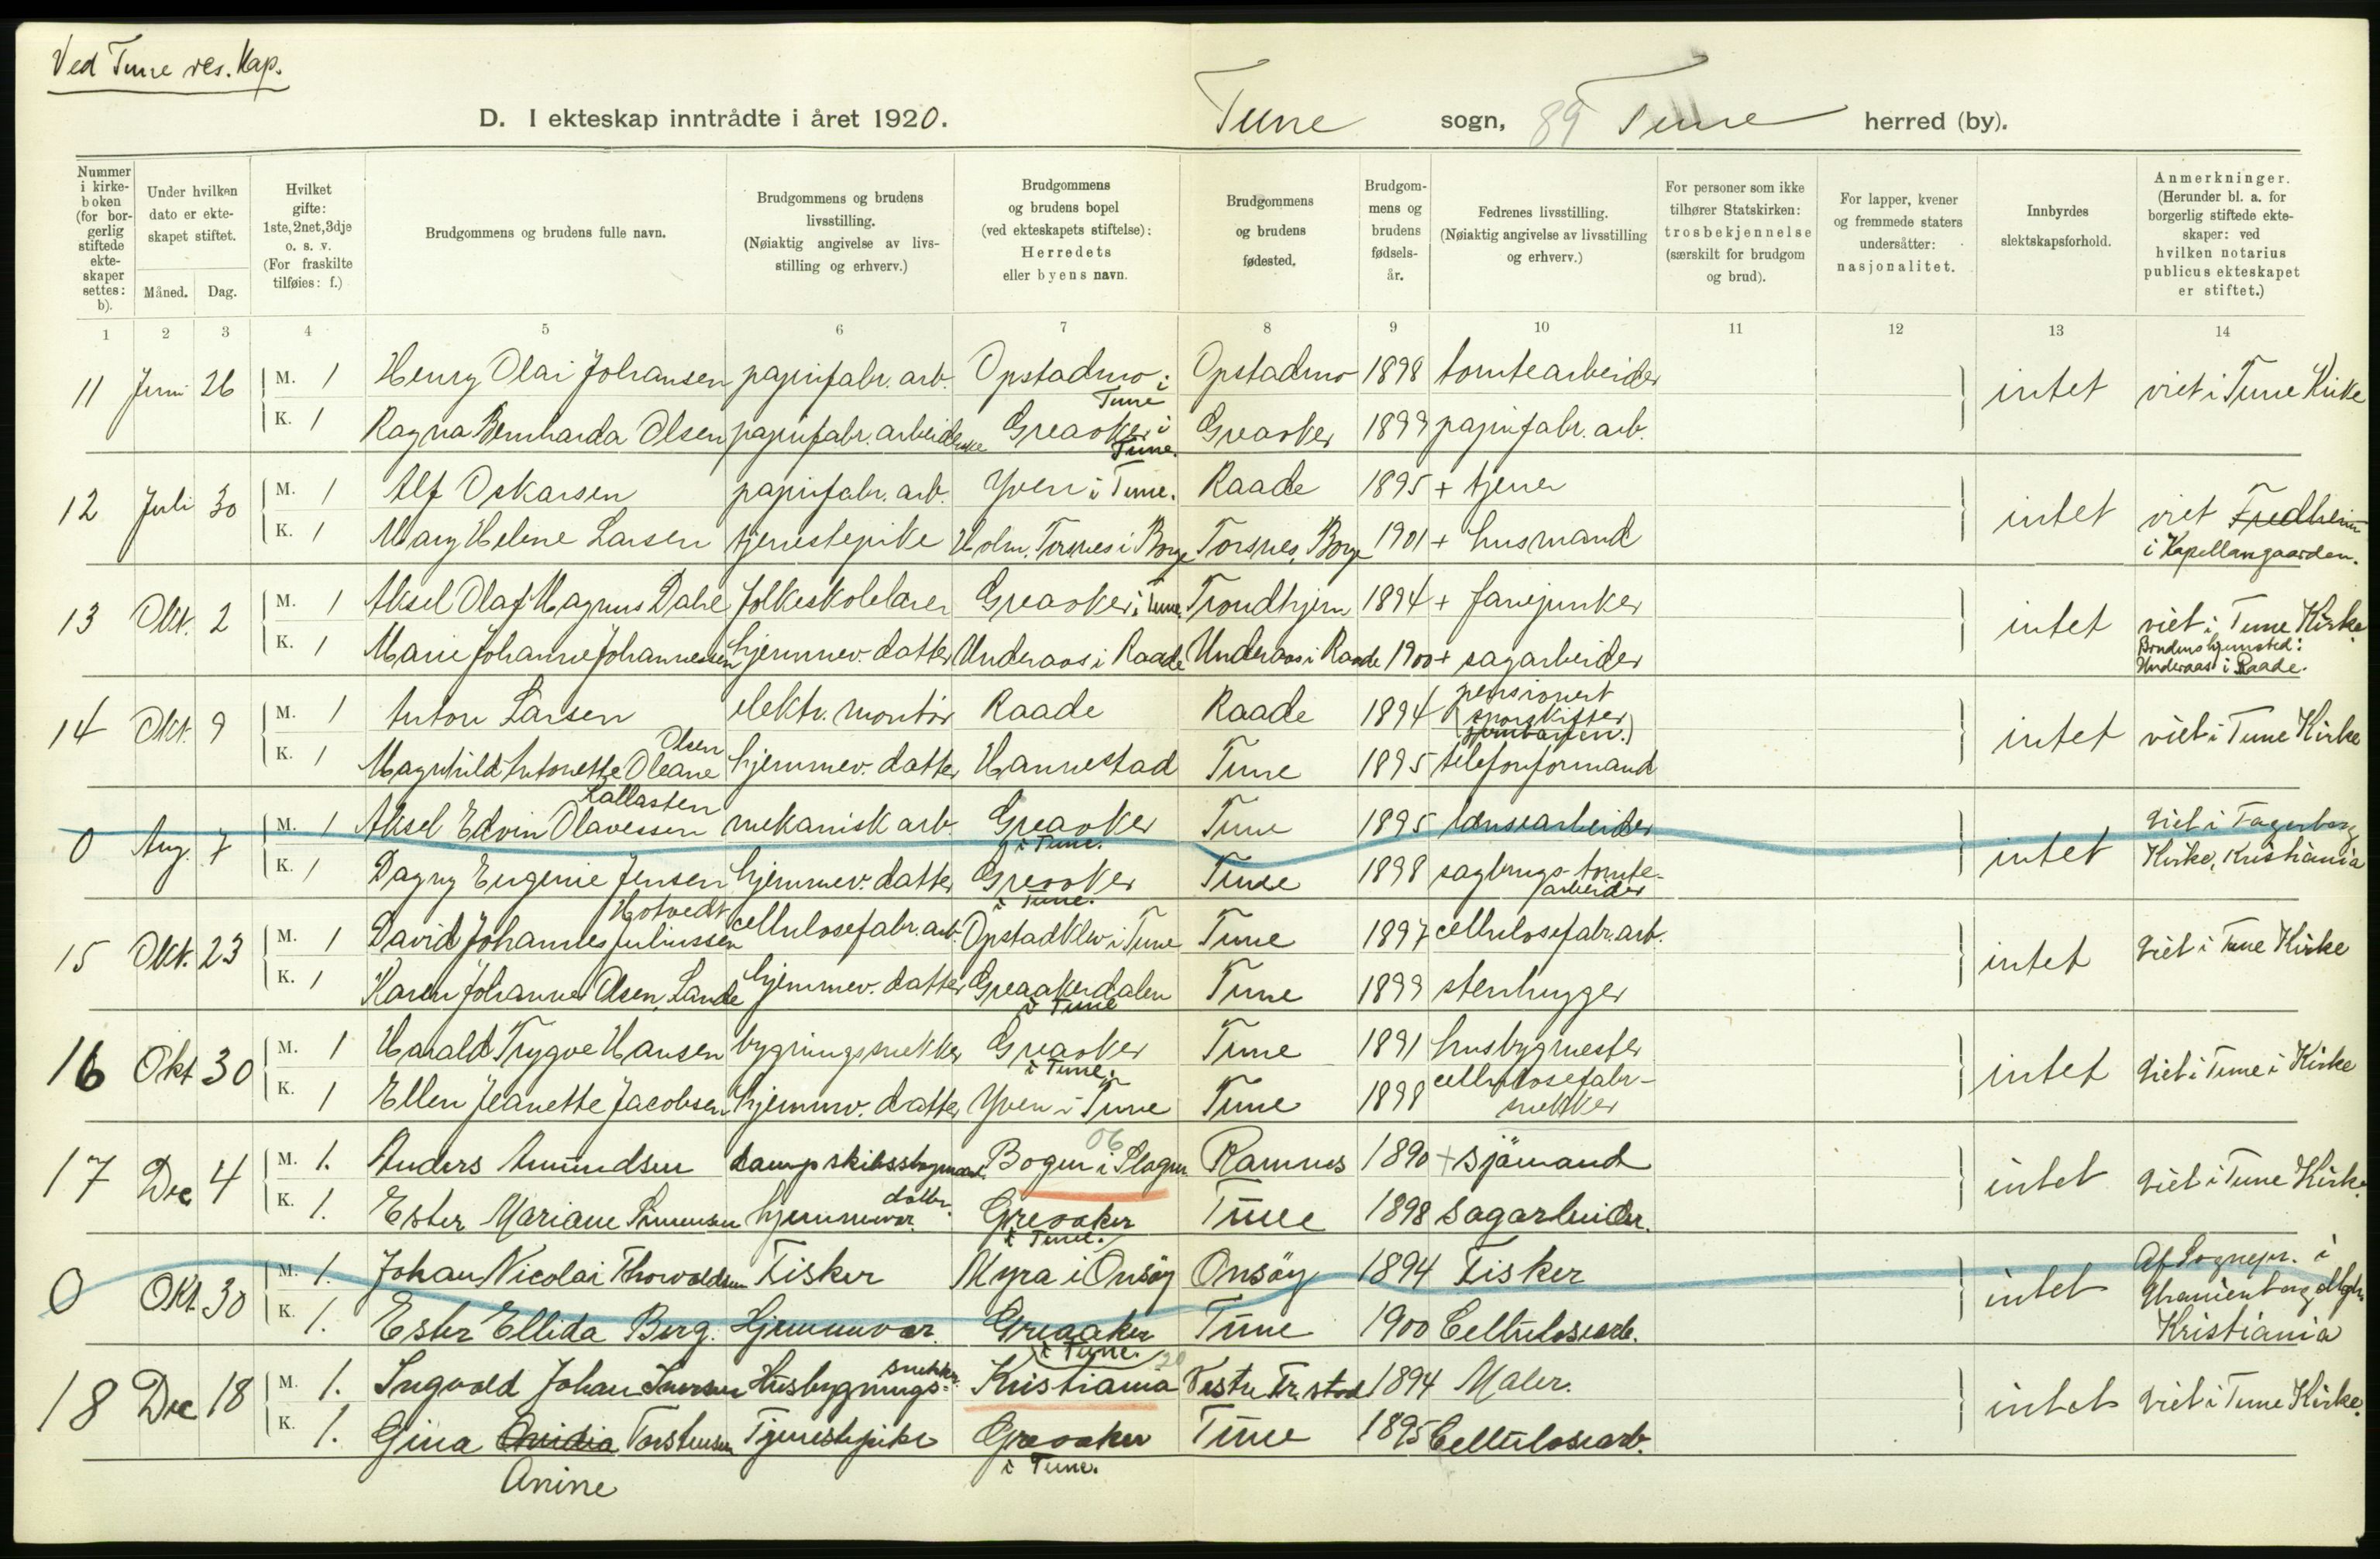 Ved Tune res. Kap.
D. I ekteskap inntrådte i året 1920. Tune sogn, 89 Tune herred (by).
Nummer i kirkeboken (for borgerlig stiftede ekteskaper settes: b).
Under hvilken dato er ekteskapet stiftet.
Måned. Dag.
Hvilket gifte: 1ste, 2net, 3dje o. s. v. (For fraskilte tilføies: f.)
Brudgommens og brudens fulle navn.
Brudgommens og brudens livsstilling. (Nøiaktig angivelse av livsstilling og erhverv.)
Brudgommens og brudens bopel (ved ekteskapets stiftelse): Herredets eller byens navn.
Brudgommens og brudens fødested.
Brudgommens og brudens fødselsår.
Fedrenes livsstilling. (Nøiaktig angivelse av livsstilling og erhverv.)
For personer som ikke tilhører Statskirken: trosbekjennelse (særskilt for brudgom og brud).
For lapper, kvener og fremmede staters undersåtter: nasjonalitet.
Innbyrdes slektskapsforhold.
Anmerkninger. (Herunder bl. a. for borgerlig stiftede ekteskaper: ved hvilken notarius publicus ekteskapet er stiftet.)
1 2 3 4 5 6 7 8 9 10 11 12 13 14
11 Juni 26 M. 1 Henry Olai Johansen papirfabr. arb. Opstadmo i Tune Opstadmo 1898 tomtearbeider intet viet i Tune Kirke
K. 1 Ragna Bernharda Olsen papirfabr. arbeiderske Greaaker i Tune. Greaaker 1899 papirfabr. arb.
12 Juli 30 M. 1 Alf Oskarsen papirfabr. arb. Yven i Tune. Raade 1895 + tjener intet viet Fredheim i Kapellangaarden.
K. 1 Mary Helene Larsen tjenestepike Holm, Torsnes i Borge Torsnes, Borge 1901 + husmand
13 Okt. 2 M. 1 Aksel Olaf Magnus Dahl folkeskolelærer Greaaker i Tune Trondhjem 1894 + fanejunker intet viet i Tune Kirke
K. 1 Marie Johanne Johannessen hjemmev. datter Underaas i Raade Underaas i Raade 1900 + sagarbeider Brudens hjemsted: Underaas i Raade.
14 Okt. 9 M. 1 Anton Larsen elektr. montør Raade Raade 1894 pensionert (sporskifter jernbanen.) intet viet i Tune Kirke
K. 1 Magnhild Antonette Oleane Olsen hjemmev. datter Hannestad Tune 1895 telefonformand
0 Aug. 7 M. 1 Aksel Edvin Olavessen Kallasten mekanisk arb. Greaaker i Tune. Tune 1895 lænsearbeider intet Viet i Fagerborg Kirke, Kristiania
K. 1 Dagny Eugenie Jensen hjemmev. datter Greaaker i Tune. Tune 1898 sagbrugs-tomtearbeider
15 Okt. 23 M. 1 David Johannes Juliussen Hotvedt cellulosefabr. arb. Opstadklev i Tune Tune 1897 cellulosefabr. arb. intet Viet i Tune Kirke
K. 1 Karen Johanne Olsen, Lande hjemmev. datter Greaakerdalen i Tune Tune 1899 stenhugger
16 Okt 30 M. 1 Harald Trygve Hansen bygningssnekker Greaaker i Tune. Tune 1891 husbygmester intet Viet i Tune i Kirke
K. 1 Ellen Jeanette Jacobsen hjemmev. datter Yven i Tune Tune 1898 cellulosefabr-snekker
17 Dec 4 M. 1. Anders Amundsen dampskibs Bogen i Slagen 06 Ramnes 1890 + Sjømand intet Viet i Tune Kirke.
K. 1. Ester Mariane Simensen hjemmevær. datter. Greaaker i Tune. Tune 1898 Sagarbeider.
0 Okt. 30 M. 1. Johan Nicolai Thorvaldsen Fisker Myra i Onsøy Onsøy 1894 Fisker intet Af Sognepr. i Uranienborg Mgh. Kristiania
K. 1. Ester Ellida Berg. Hjemmevær. Greaaker i Tune. Tune 1900 Cellulosearb.
18 Dec 18 M. 1. Ingvald Johan Iversen Husbygnings-snekker. Kristiania 20 Vestre Fr.stad 1894 Maler. intet Viet i Tune Kirke.
K. 1. Gina Anine Torstensen Tjenestepike Greaaker i Tune. Tune 1895 Cellulosearb.